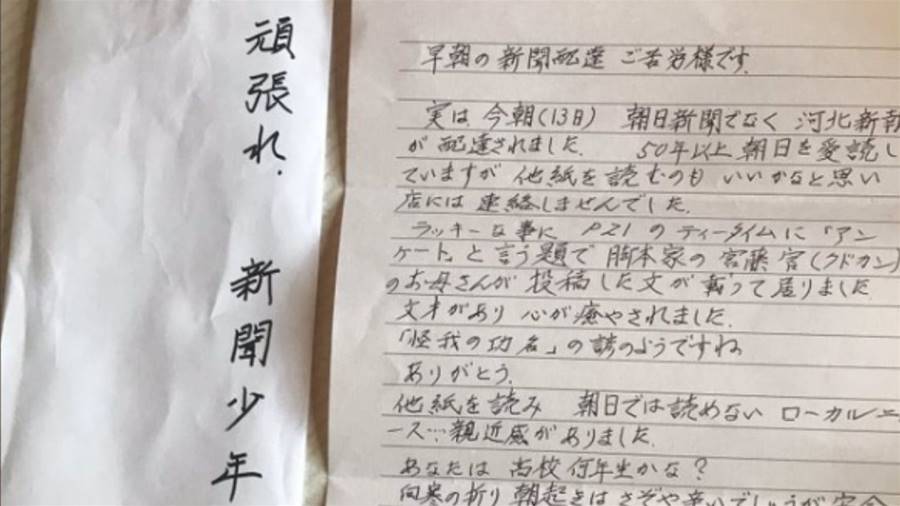 頑張れ.
新聞少年
早朝の新聞配達 ご苦労様です.
実は今朝(13日) 朝日新聞でなく 河北新報
が配達されました. 50年以上朝日を愛読し
ていますが 他紙を読むのも いいかなと思い
店には連絡しませんでした.
ラッキーな事に P21のティータイムに「アン
ケート」と言う題で 脚本家の宮藤官(クドカン)
のお母さんが 投稿した文が載って居りました
文才があり 心が癒やされました.
「怪我の功名」の諺のようですね
ありがとう.
他紙を読み 朝日では読めない ローカルニュ
ース…親近感がありました.
あなたは 高校何年生かな?
向寒の折り 朝起きは さぞや辛いでしょうが 安全